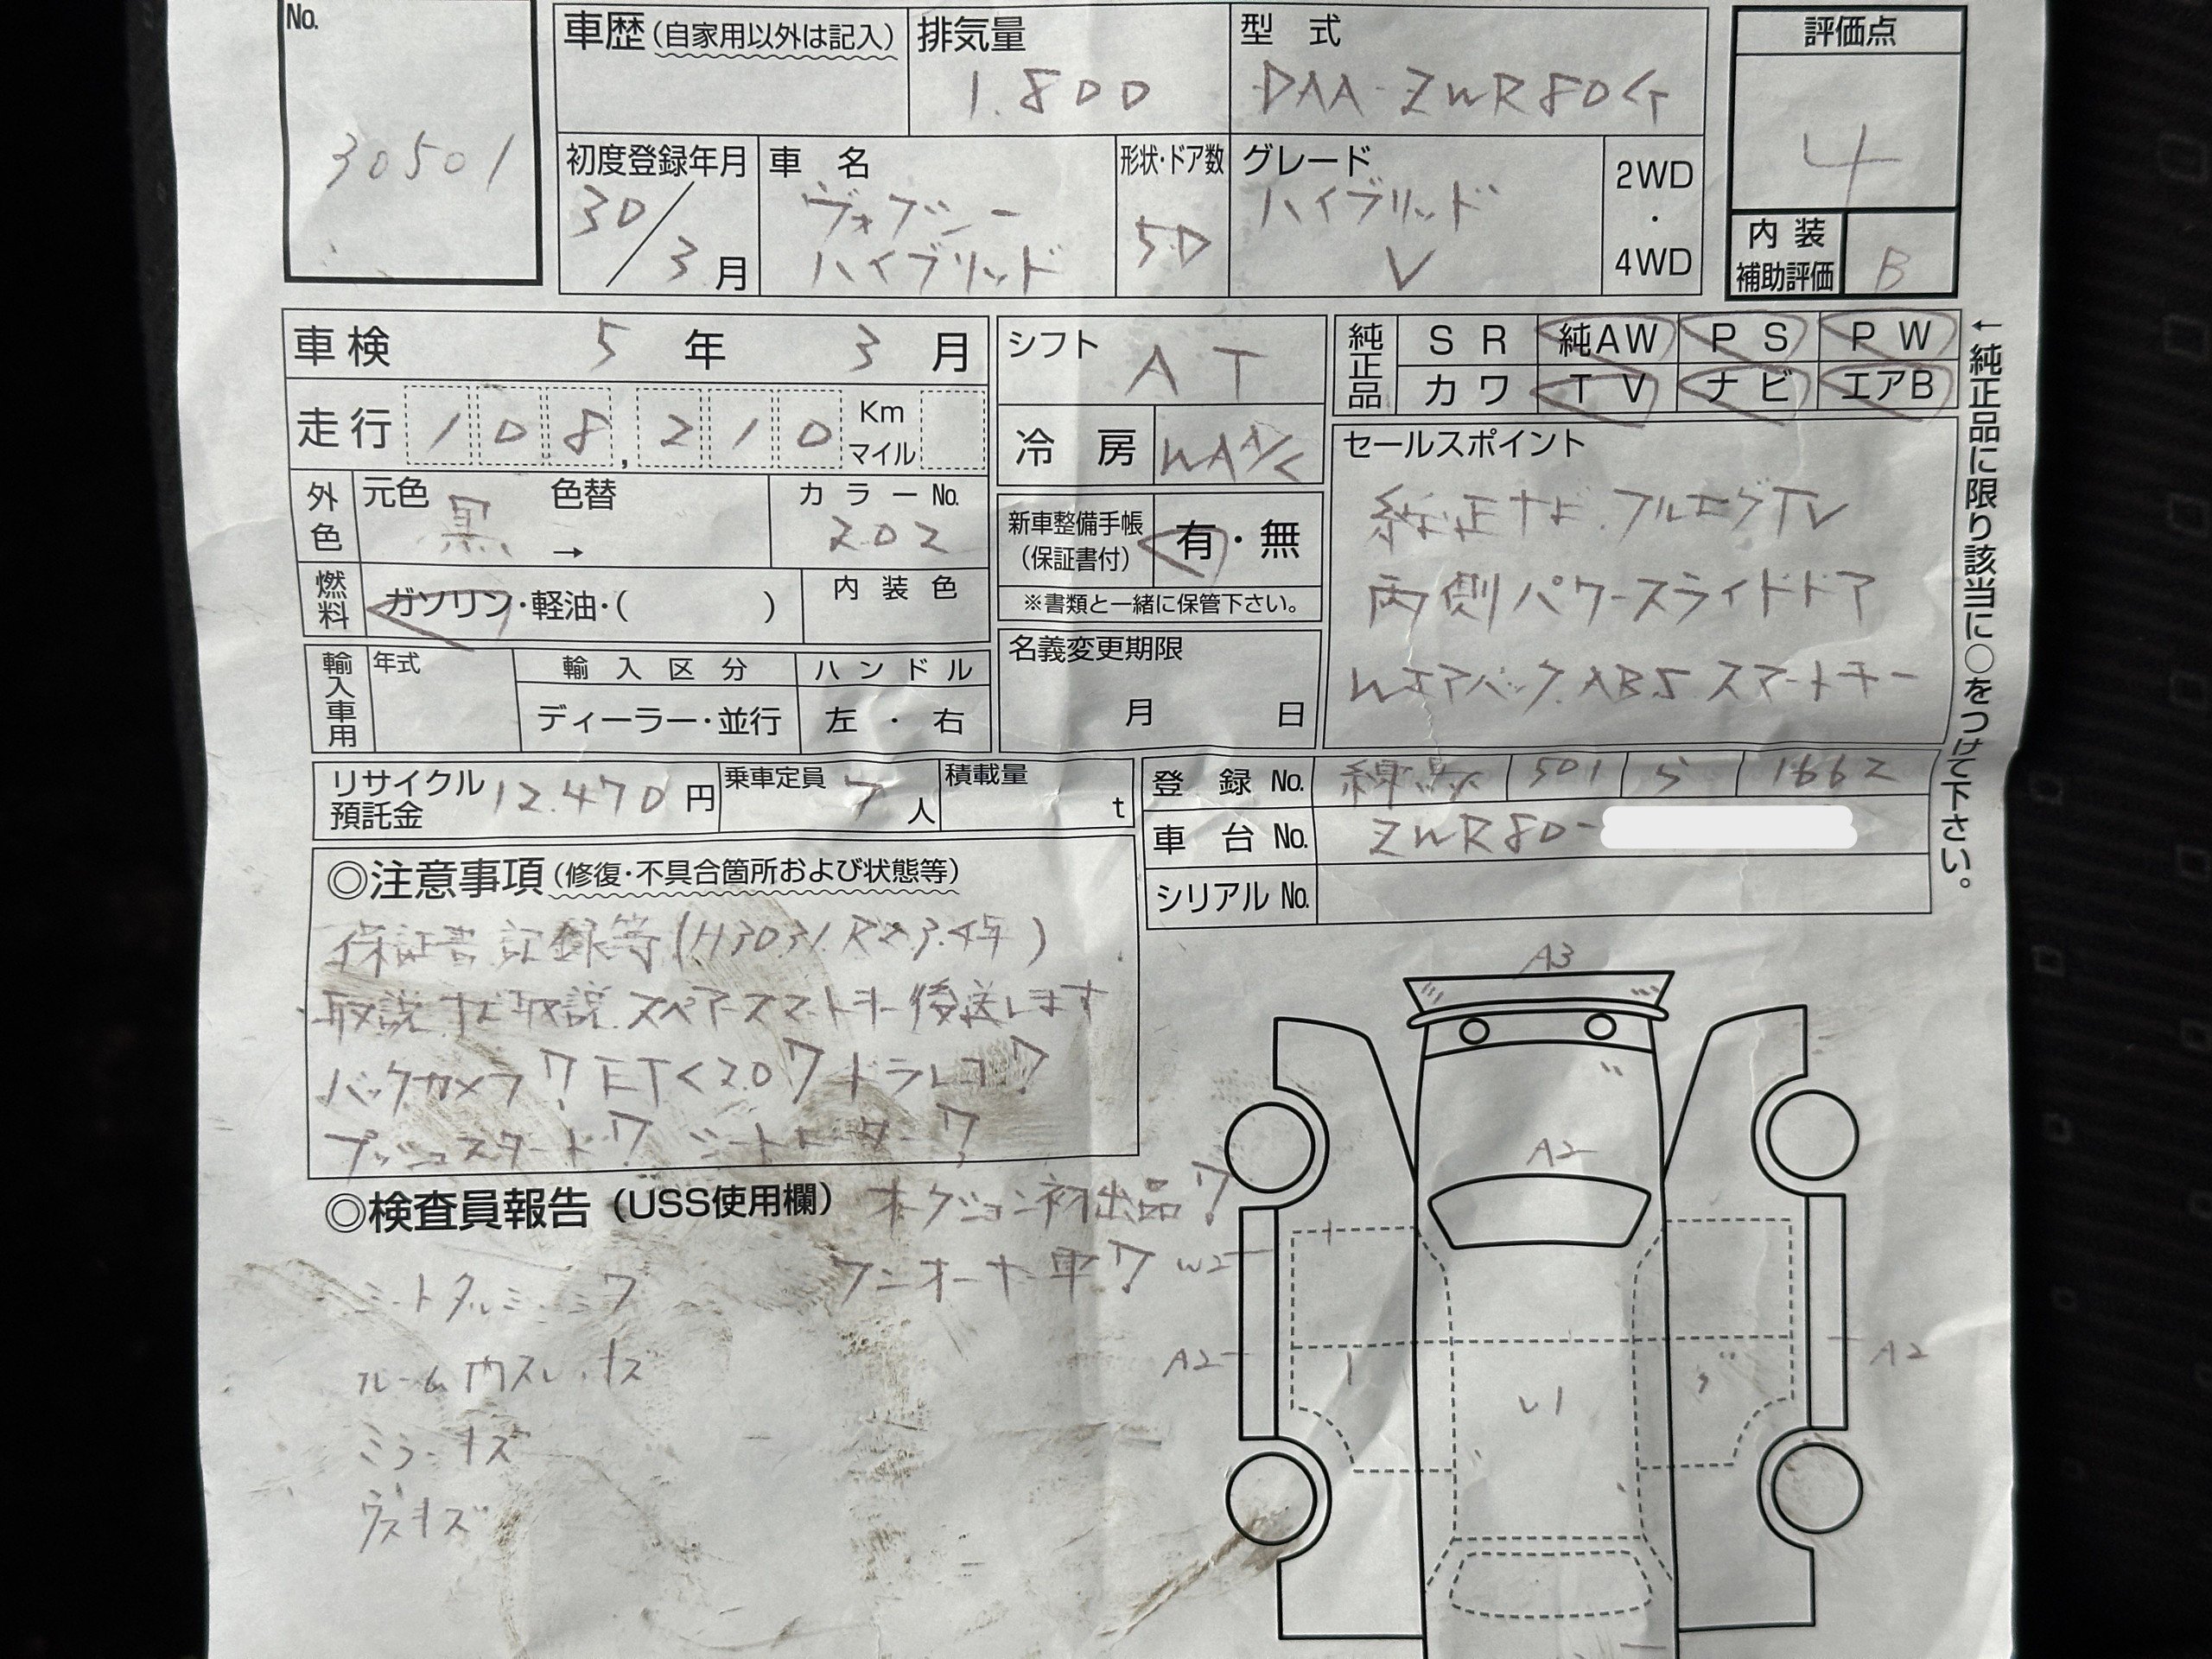 No.
30501
車歴(自家用以外は記入)
排気量
1.800
型 式
DAA-ZWR80G
評価点
4
初度登録年月
30/3月
車 名
ヴォクシー
ハイブリッド
形状・ドア数
5D
グレード
ハイブリッド
V
2WD
・
4WD
内 装
補助評価
B
車検 5 年 3 月
シフト
AT
純正品
S R
純AW
P S
P W
カワ
T V
ナビ
エアB
←純正品に限り該当に○をつけて下さい。
走行 108,210 Km
マイル
冷 房 WAA/C
外色
元色 黒
色替 →
カラーNo.
202
新車整備手帳
(保証書付)
有・無
※書類と一緒に保管下さい。
セールスポイント
純正ナビ.フルセグTV
両側パワースライドドア
Wエアバック.ABS.スマートキー
燃料
ガソリン・軽油・( )
内装色
名義変更期限
月 日
輸入車用
年式
輸入区分
ディーラー・並行
ハンドル
左・右
リサイクル
預託金 12.470 円
乗車定員
7人
積載量
t
登 録 No. 練馬 501 5 1662
車 台 No. ZWR80-
シリアル No.
◎注意事項(修復・不具合箇所および状態等)
保証書記録等
取説.ナビ取説.スペアスマートキー後送します
バックカメラ!? ETC2.0!? ドラレコ!?
プッシュスタート!? シートヒーター!?
◎検査員報告(USS使用欄)
オークション初出品!?
ワンオーナー車!?
ルーム内スレ.キズ
ミラーキズ
A3
A2
W2
A2
A2
U1